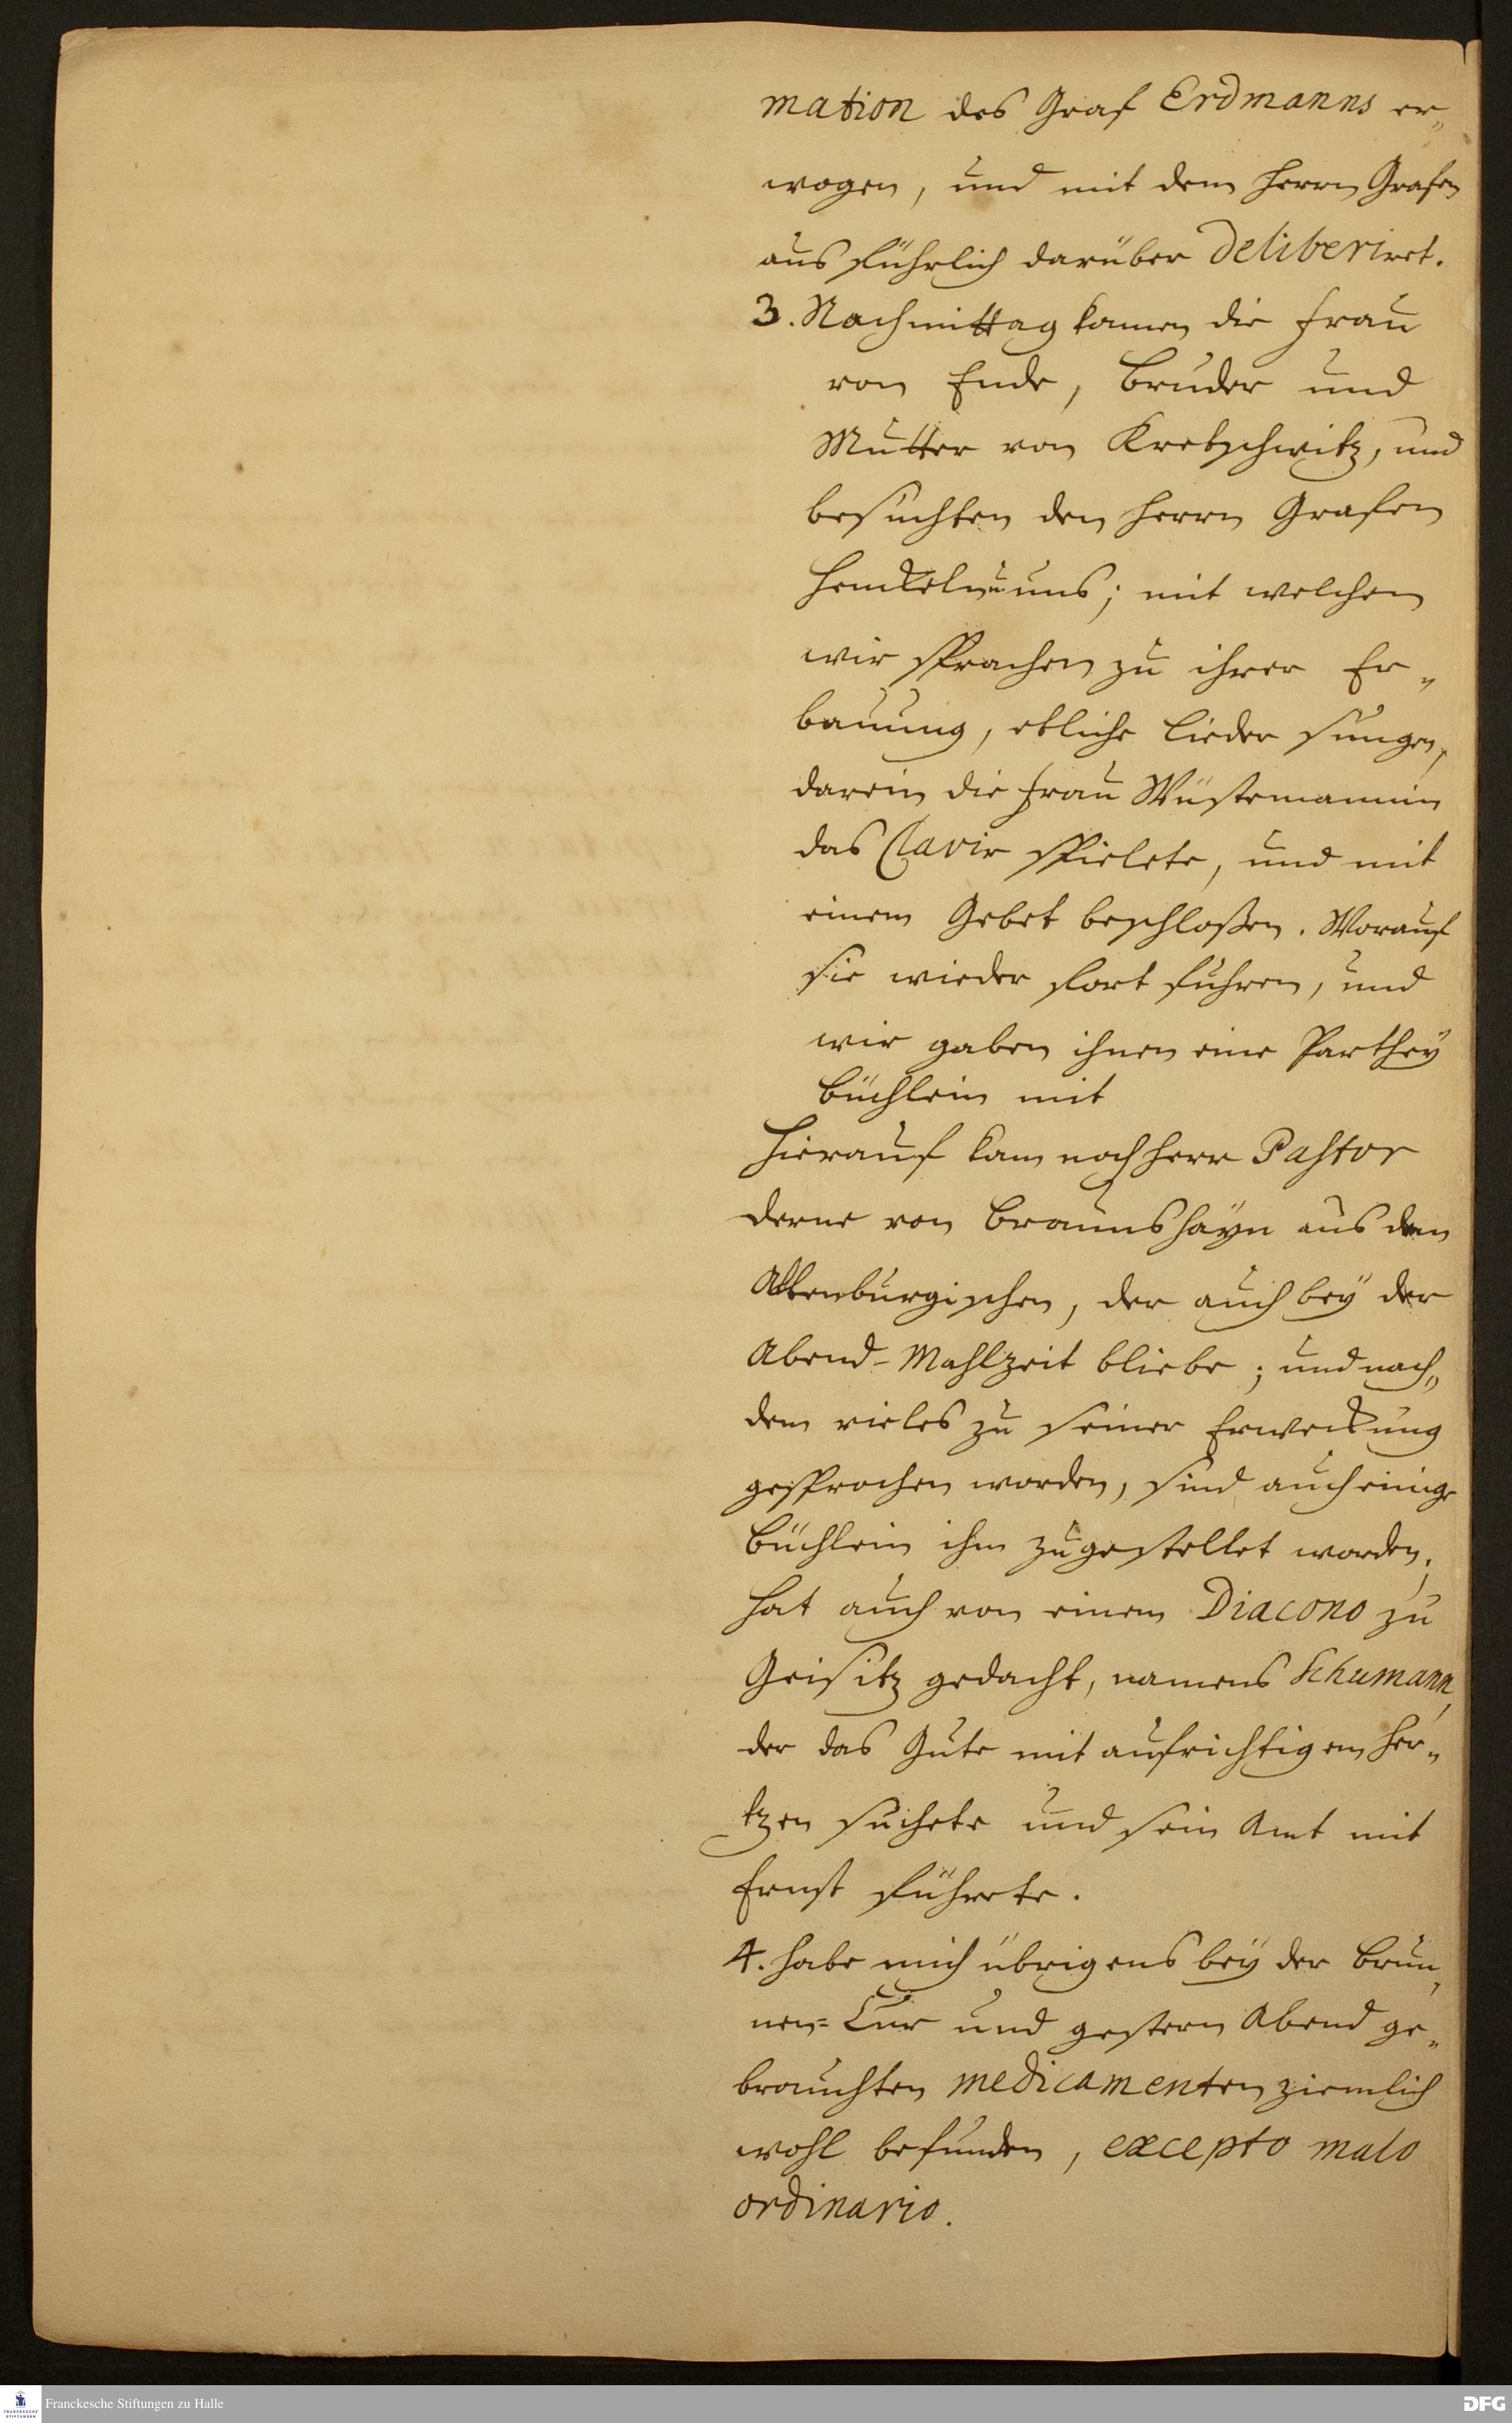 mation des Graf Erdmanns er„
wogen, und mit dem Herrn Grafen
ausführlich darüber deliberiret.
3. Nachmittag kamen die Frau
von Ende, Bruder und
Mutter von Kretzschwitz, und
besuchten den Herrn Grafen
Henckeln u uns; mit welchen
wir sprachen zu ihrer Er„
bauung, etliche Lieder sungen,
darein die Frau Wüstemannin
das Clavir spielete, und mit
einem Gebet beschloßen. Worauf
sie wieder fort fuhren, und
wir gaben ihnen eine Parthey
Büchlein mit
Hierauf kam noch Herr Pastor
Derne von Braunshayn aus dem
Altenburgischen, der auch bey der
Abend-Mahlzeit bliebe; und nach„
dem vieles zu seiner Erweckung
gesprochen worden, sind auch einige
Büchlein ihm zugestellet worden,
hat auch von einem Diacono zu
Geisitz gedacht, namens Schumann,
der das Gute mit aufrichtigem Her„
tzen suchete und sein Amt mit
Ernst führete.
4. habe mich übrigens bey der Brun„
nen=Cur und gestern Abend ge„
brauchten medicamenten ziemlich
wohl befunden, excepto malo
ordinario.
Franckesche Stiftungen zu Halle
FRANCKESCHE STIFTUNGEN
DFG